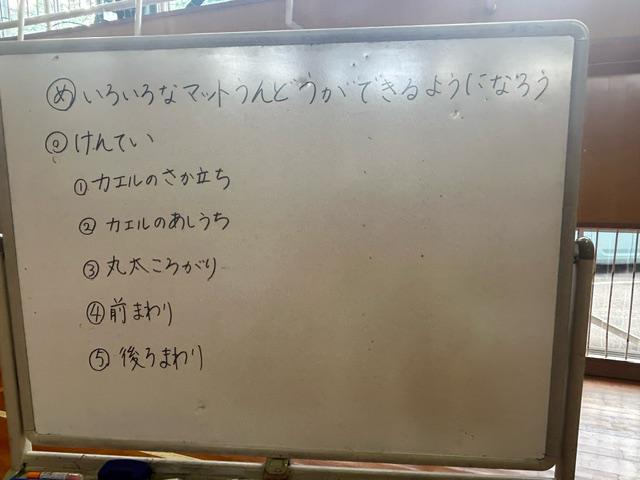 め いろいろなマットうんどうができるようになろう
◎ けんてい
① カエルのさか立ち
② カエルのあしうち
③ 丸太ころがり
④ 前まわり
⑤ 後ろまわり